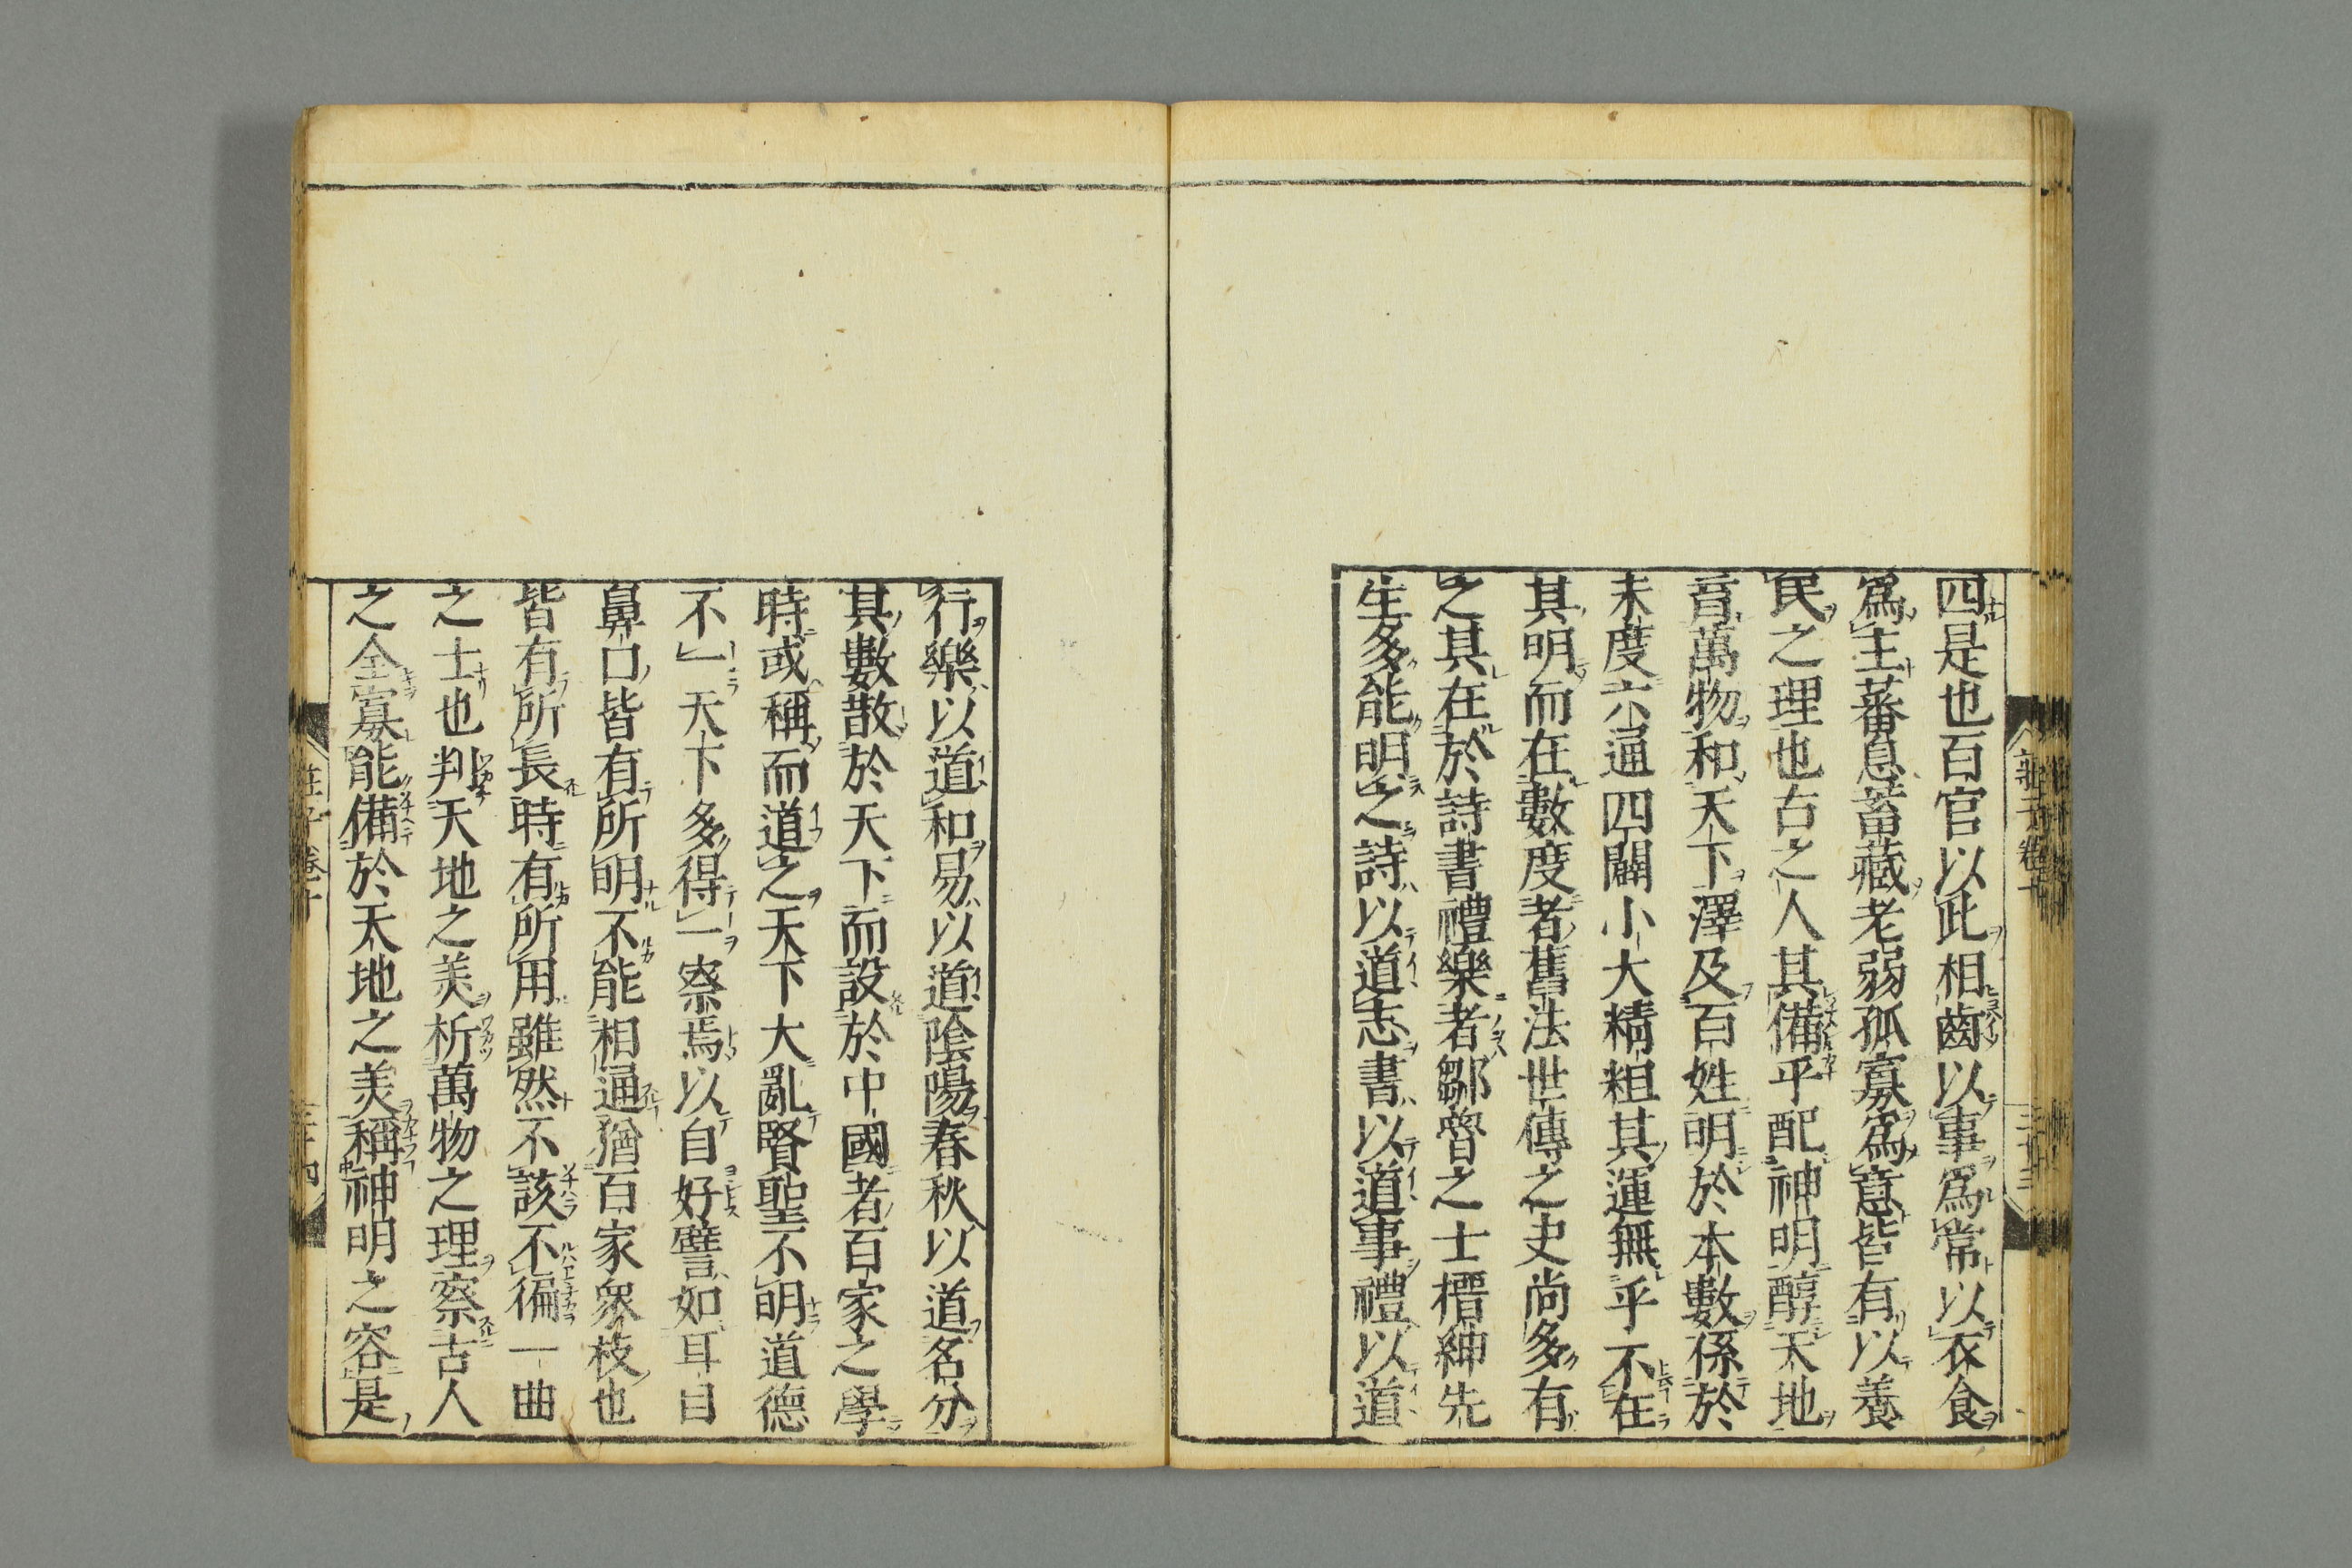 四是也百官以此相齒以事爲常以衣食
爲主蕃息蓄藏老弱孤寡爲意皆有以養
民之理也古之人其備乎配神明醇天地
育萬物和天下澤及百姓明於本數係於
末度六通四闢小大精粗其運無乎不在
其明而在數度者舊法世傳之史尚多有
之其在於詩書禮樂者鄒魯之士搢紳先
生多能明之詩以道志書以道事禮以道
行樂以道和易以道陰陽春秋以道名分
其數散於天下而設於中國者百家之學
時或稱而道之天下大亂賢聖不明道德
不一天下多得一察焉以自好譬如耳目
鼻口皆有所明不能相通猶百家衆枝也
皆有所長時有所用雖然不該不徧一曲
之士也判天地之美析萬物之理察古人
之全寡能備於天地之美稱神明之容是
莊子卷十